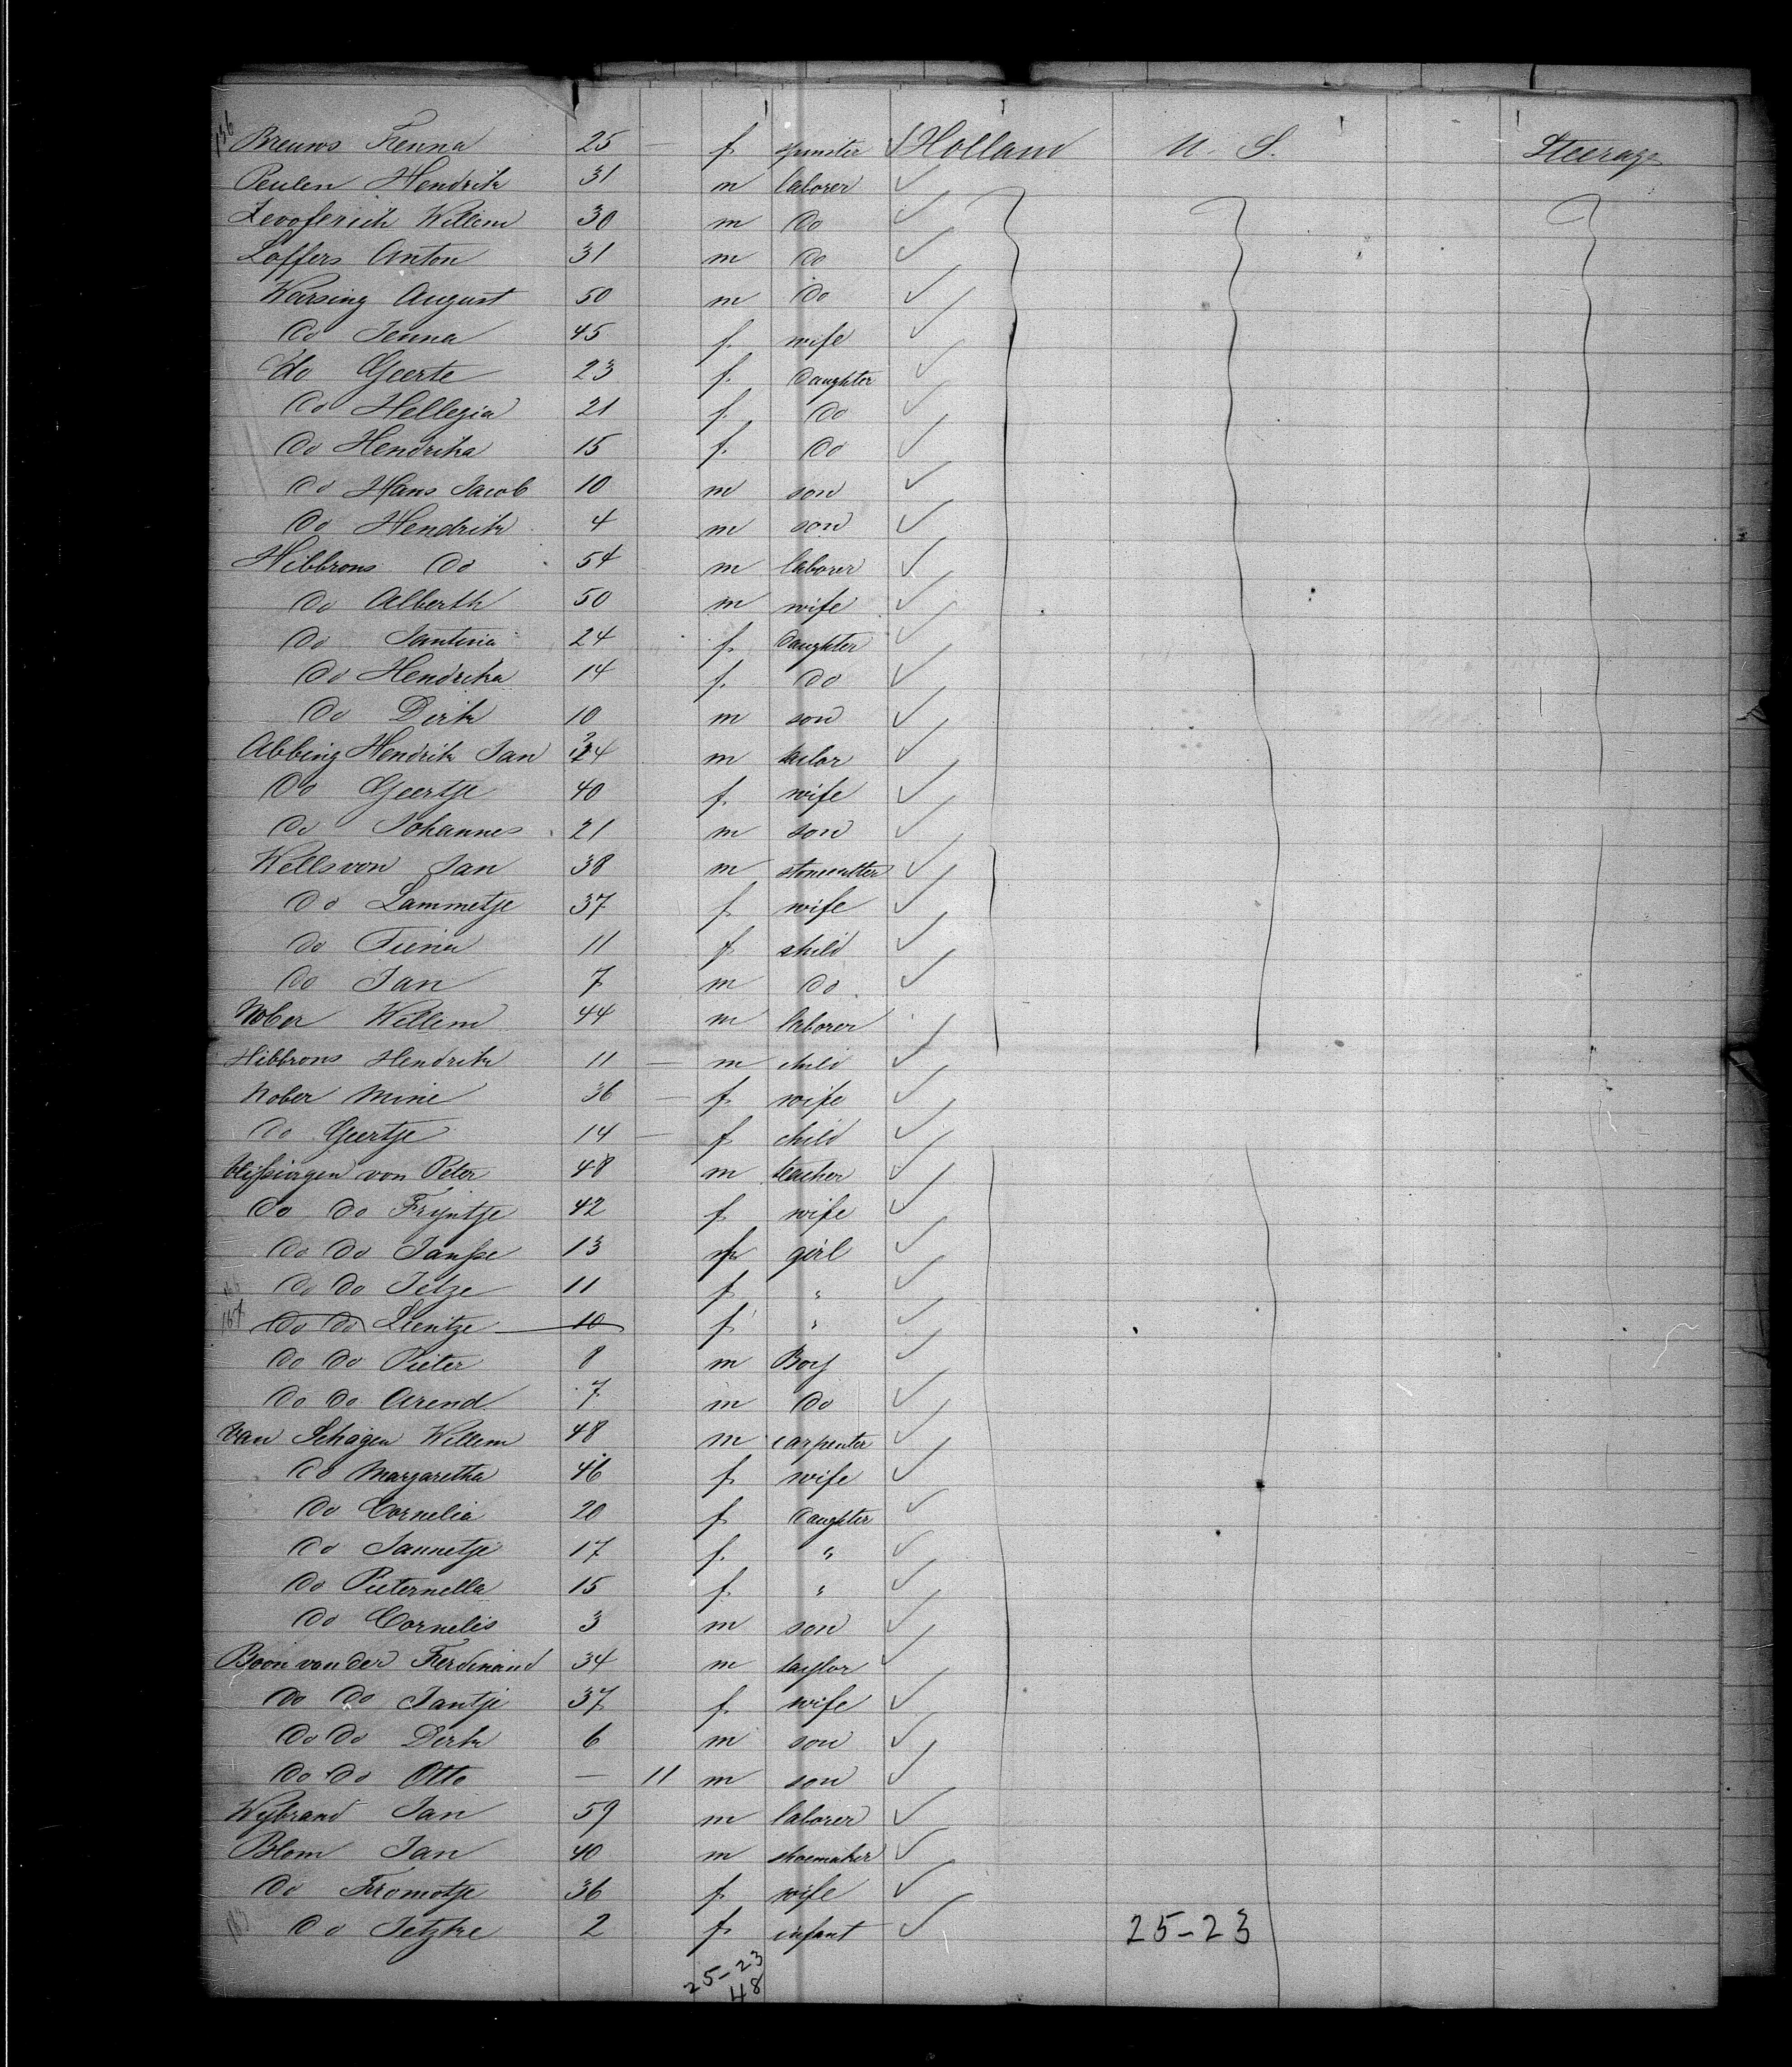 136
Breuws Fenna 25 — f spinster ✓ Holland U. S. Steerage
Peulen Hendrik 31 m laborer ✓
Willem 30 m do ✓
Loffers Anton 31 m do ✓
Warsing August 50 m do ✓
do Jenna 45 f. wife ✓
do Geerte 23 f. daughter ✓
do Hellegia 21 f. do ✓
do Hendrika 15 f. do ✓
do Hans Jacob 10 m son ✓
do Hendrik 4 m son ✓
Hibbrons do 54 m laborer ✓
do Alberth 50 m wife ✓
do Jantina 24 f. daughter ✓
do Hendrika 14 f. do ✓
do Dirk 10 m son ✓
Abbing Hendrik Jan m tailor ✓
do Geertje 40 f. wife ✓
do Johannes 21 m son ✓
Wells von Jan 38 m stonecutter ✓
do Lammetje 37 f wife ✓
do Fiena 11 f child ✓
do Jan 7 m do ✓
Nober Willem 44 m laborer
Hibbrons Hendrik 11 — m child ✓
Nober Mine 36 — f wife ✓
do Geertje 14 — f child ✓
von Peter 48 m teacher ✓
do do Trijntje 42 f wife ✓
do do 13 f girl ✓
do do Jelze 11 f " ✓
do do Lientze 10 f " ✓
do do Pieter 8 m Boy ✓
do do Arend 7 m do ✓
van Schagen Willem 48 m carpenter ✓
do Margaretha 46 f wife ✓
do Cornelia 20 f daughter ✓
do Jannetje 17 f. " ✓
do Pieternella 15 f. " ✓
do Cornelis 3 m son ✓
Boon van der Ferdinand 34 m taylor ✓
do do Jantje 37 f. wife ✓
do do Derk 6 m son ✓
do do Otto — 11 m son ✓
Wybrand Jan 59 m laborer ✓
Blom Jan 40 m shoemaker ✓
do Fromotje 36 f. wife ✓
do Jetzke 2 f. infant ✓ 25-23
25-23
48